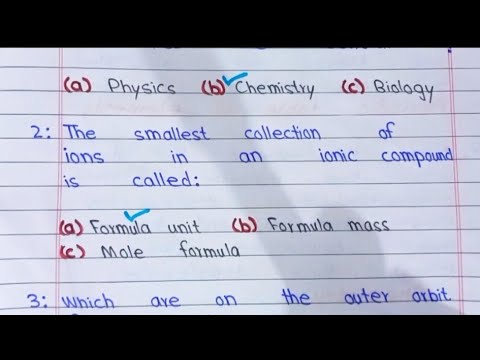 (a) Physics (b) Chemistry (c) Biology
2: The smallest collection of
ions in an ionic compound
is called:
(a) Formula unit (b) Formula mass
(c) Mole formula
3: Which are on the outer orbit